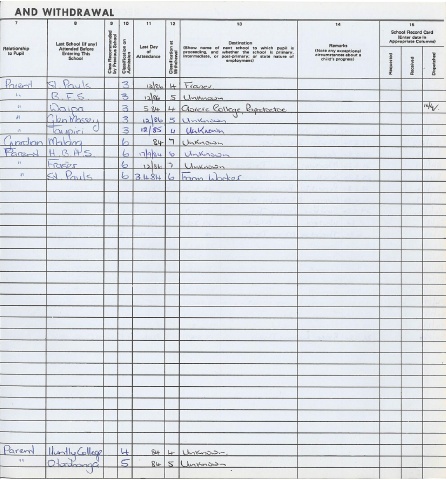 AND WITHDRAWAL
7 8 9 10 11 12 13 14 15
Relationship to Pupil
Last School (if any) Attended Before Entering This School
Class Recommended by Previous School
Classification on Admission
Last Day of Attendance
Classification at Withdrawal
Destination
(Show name of next school to which pupil is proceeding, and whether the school is primary, intermediate, or post-primary, or state nature of employment)
Remarks
(Note any exceptional circumstances about a child's progress)
School Record Card
(Enter date in Appropriate Columns)
Requested Received Dispatched
Parent St Pauls 3 12/84 4 Fraser
" B.F.S. 3 12/84 5 Unknown
" 3 5 84 4 College
" Glen Massey 3 12/84 5 Unknown
" Taupiri 3 12/85 4 Unknown
6 84 7 Unknown
Parent 6 6 Unknown
" Fraser 6 12/84 7 Unknown
" St. Pauls 6 6 Farm Worker
Parent Huntly College 4 84 4 Unknown
" Otorohanga 5 84 5 Unknown